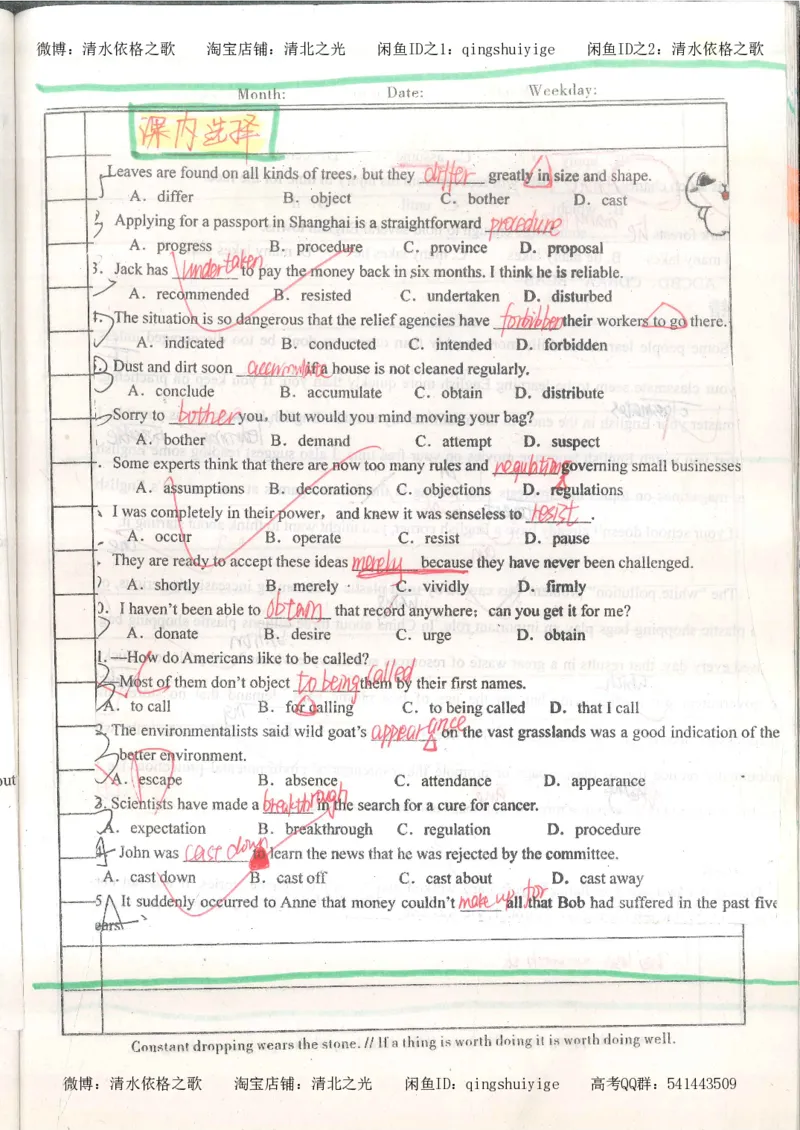 微博：清水依格之歌 淘宝店铺：清北之光 闲鱼ID之1：qingshuiyige 闲鱼ID之2：清水依格之歌
Month: Date: Weekday:
课内选择
Leaves are found on all kinds of trees, but they differ greatly in size and shape.
A．differ B．object C．bother D．cast
Applying for a passport in Shanghai is a straightforward procedure
A．progress B．procedure C．province D．proposal
3. Jack has undertaken to pay the money back in six months. I think he is reliable.
A．recommended B．resisted C．undertaken D．disturbed
The situation is so dangerous that the relief agencies have forbidden their workers to go there.
A．indicated B．conducted C．intended D．forbidden
Dust and dirt soon accumulate if a house is not cleaned regularly.
A．conclude B．accumulate C．obtain D．distribute
Sorry to bother you, but would you mind moving your bag?
A．bother B．demand C．attempt D．suspect
. Some experts think that there are now too many rules and regulations governing small businesses
A．assumptions B．decorations C．objections D．regulations
I was completely in their power, and knew it was senseless to resist.
A．occur B．operate C．resist D．pause
They are ready to accept these ideas merely because they have never been challenged.
A．shortly B．merely C．vividly D．firmly
0．I haven't been able to obtain that record anywhere; can you get it for me?
A．donate B．desire C．urge D．obtain
1. —How do Americans like to be called?
—Most of them don't object to being called them by their first names.
A．to call B．for calling C．to being called D．that I call
2. The environmentalists said wild goat's appearance on the vast grasslands was a good indication of the
better environment.
A．escape B．absence C．attendance D．appearance
3. Scientists have made a breakthrough in the search for a cure for cancer.
A．expectation B．breakthrough C．regulation D．procedure
4. John was cast down to learn the news that he was rejected by the committee.
A．cast down B．cast off C．cast about D．cast away
5. It suddenly occurred to Anne that money couldn't make up for all that Bob had suffered in the past five
ears
Constant dropping wears the stone. // If a thing is worth doing it is worth doing well.
微博：清水依格之歌 淘宝店铺：清北之光 闲鱼ID：qingshuiyige 高考QQ群：541443509